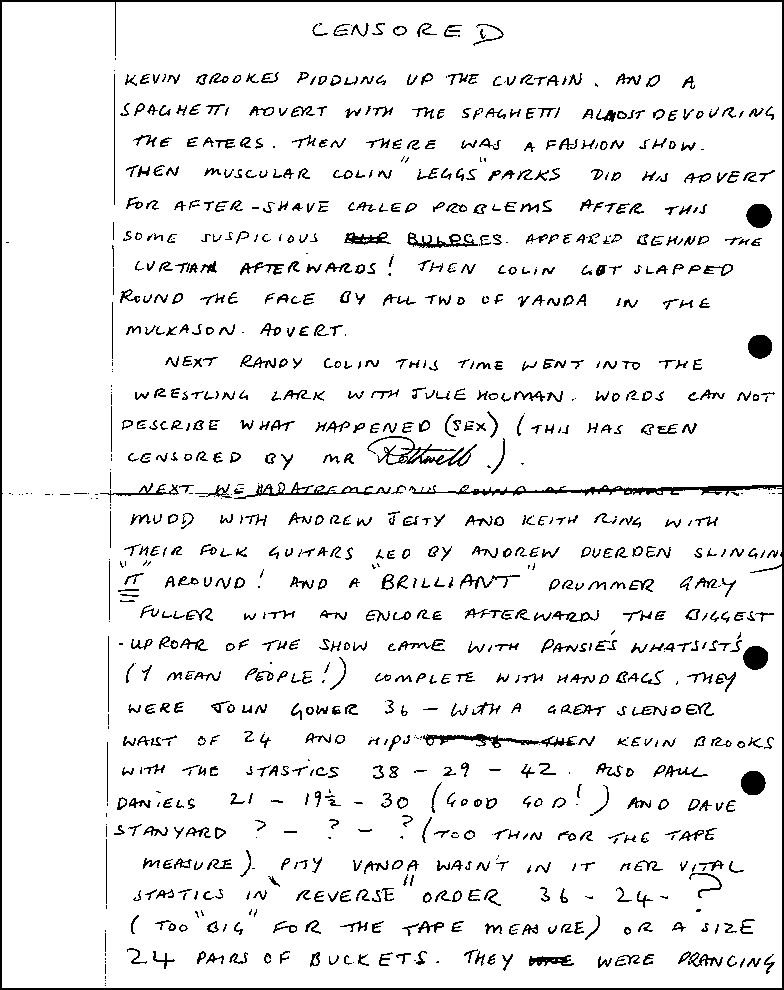 CENSORED
KEVIN BROOKES PIDDLING UP THE CURTAIN. AND A
SPAGHETTI ADVERT WITH THE SPAGHETTI ALMOST DEVOURING
THE EATERS. THEN THERE WAS A FASHION SHOW.
THEN MUSCULAR COLIN "LEGGS" PARKS DID HIS ADVERT
FOR AFTER-SHAVE CALLED PROBLEMS AFTER THIS
SOME SUSPICIOUS BULDGES. APPEARED BEHIND THE
CURTAIN AFTERWARDS! THEN COLIN GOT SLAPPED
ROUND THE FACE BY ALL TWO OF VANDA IN THE
MULKASON. ADVERT.
NEXT RANDY COLIN THIS TIME WENT INTO THE
WRESTLING LARK WITH JULIE HOLMAN. WORDS CAN NOT
DESCRIBE WHAT HAPPENED (SEX) (THIS HAS BEEN
CENSORED BY MR Rothwell.).
NEXT WE HAD A TREMENDOUS ROUND OF APPLAUSE FOR
MUDD WITH ANDREW JESTY AND KEITH RING WITH
THEIR FOLK GUITARS LED BY ANDREW DUERDEN SLINGING
"IT" AROUND! AND A "BRILLIANT" DRUMMER GARY
FULLER WITH AN ENCORE AFTERWARDS THE BIGGEST
-UPROAR OF THE SHOW CAME WITH PANSIE'S WHATSISTS
(I MEAN PEOPLE!) COMPLETE WITH HANDBAGS, THEY
WERE JOHN GOWER 36 - WITH A GREAT SLENDER
WAIST OF 24 AND HIPS OF 36 THEN KEVIN BROOKS
WITH THE STASTICS 38 - 29 - 42. ALSO PAUL
DANIELS 21 - 19½ - 30 (GOOD GOD!) AND DAVE
STANYARD ? - ? - ? (TOO THIN FOR THE TAPE
MEASURE). PITY VANDA WASN'T IN IT HER VITAL
STASTICS IN "REVERSE" ORDER 36 - 24 - ?
(TOO "BIG" FOR THE TAPE MEASURE) OR A SIZE
24 PAIRS OF BUCKETS. THEY WERE PRANCING